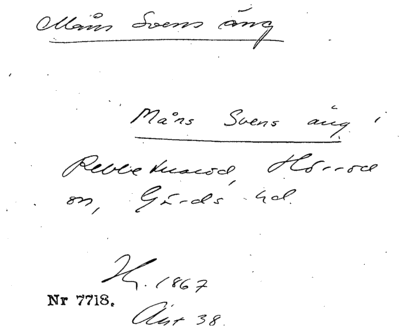 Måns Svens äng
Måns Svens äng i
Rebbetuaröd, Hörröd
sn, Gärds hd.
Hy. 1867
Nr 7718.
Ant 38.